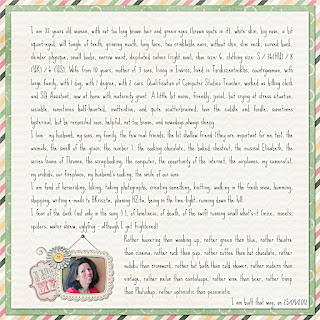 I am 33 years old woman, with not too long brown hair and green eyes (brown spots in it), white skin, big nose, a bit
squint-eyed, will tangle of teeth, grinning mouth, long face, two crabbable ears, without chin, slim neck, curved back,
slender physique, small boobs, narrow waist, depilated calves (right now), shoe size: 6, clothing size: S / 36(HU) / 8
(UK) / 6 (US). Wife from 10 years, mother of 3 sons, living in Enclos, lived in countrywoman, with
large family, with 1 dog, with 1 degree, with 2 cars. Qualification of Computer Studies Teacher, worked as billing clerk
and SQ Assistant, now at home with maternity grant. A little bit mome, friendly, jovial, but crying at stress situation,
sociable, sometimes half-hearted, inattentive, and quite scatterbrained, love the cuddle and fondle, sometimes
hysterical, but be reconciled soon, helpful, not too brave, and nowadays always sleepy.
I love: my husband, my sons, my family, the few real friends, the lot shallow friend (they are important for me too), the
animals, the smell of the grass, the number 7, the cooking chocolate, the baked chestnut, the musical Elisabeth, the
series Game of Thrones, the scrapbooking, the computer, the opportunity of the internet, the airplanes, my camera(s),
my orchids, our fireplace, my husband's cooking, the smile of our sons.
I am fond of: horseriding, biking, taking photographs, creating something, knitting, walking in the fresh snow, humming,
shopping, writing e-mails to playing in the being in the lime-light, running down the hill.
I fear of: the dark (not only in the song :) ), of loneliness, of death, of the swift running small what's-it (mice, insects,
spiders, water strew, - although I get frightened)
Rather hovering than waking up, rather green than blue, rather theatre
than cinema, rather rock than pop, rather coffee than hot chocolate, rather
rather hot bath than cold shower, rather modern than
vintage, rather melon than cantaloupe, rather wine than beer, rather Gimp
than Photoshop, rather optimistic than pessimistic.
I am built that way, on